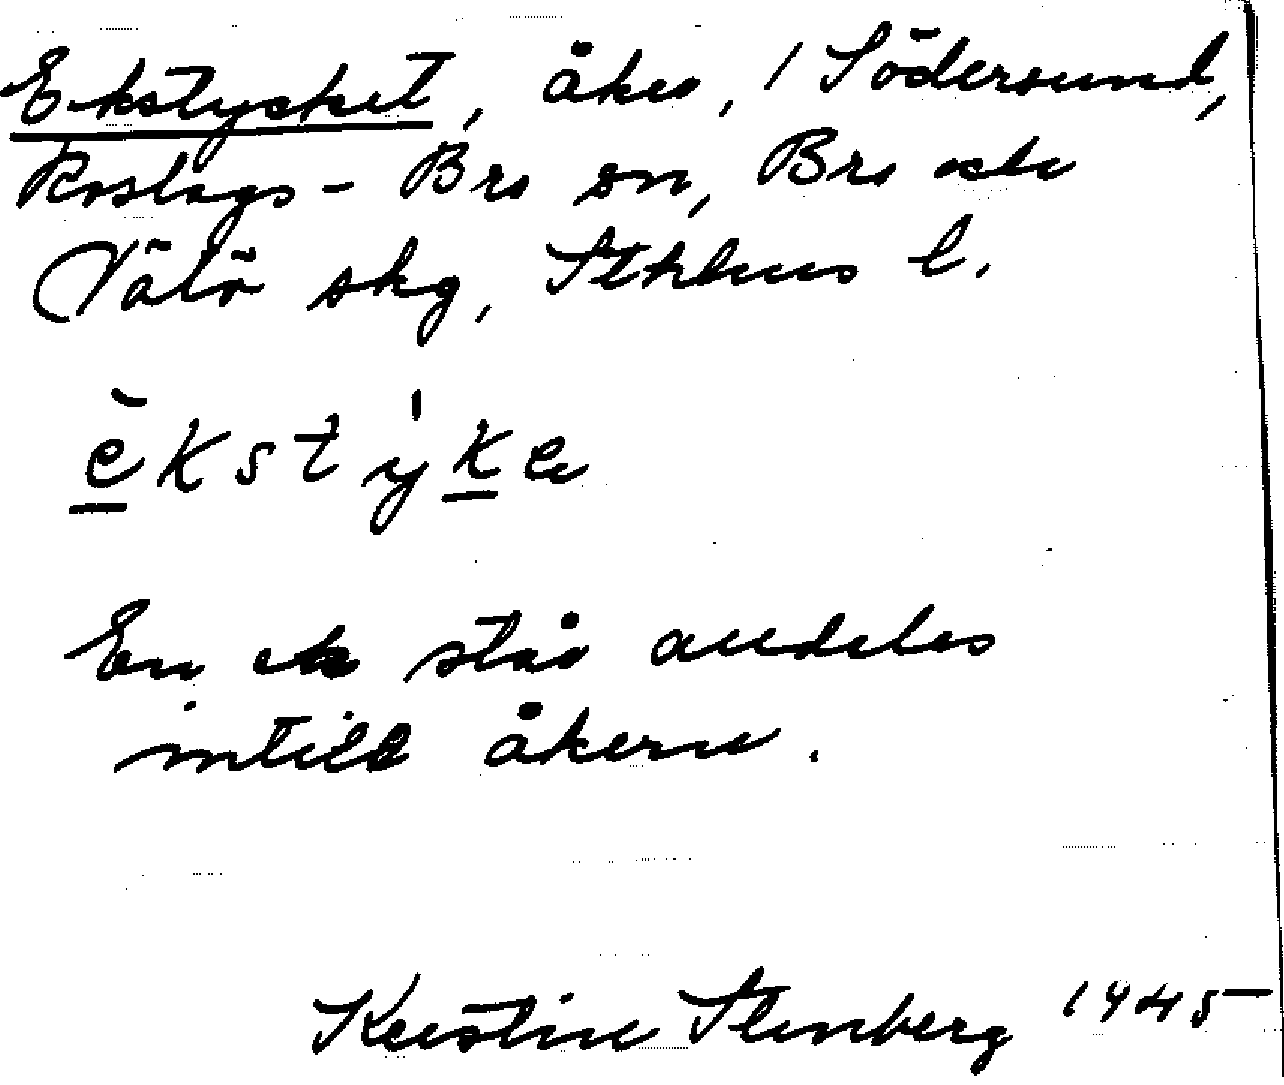 Ekstycket, åker, 1 Södersund,
Roslags-Bro sn, Bro och
Vätö skg, Sthlms l.
èkstýke
En ek står alldeles
intill åkern.
Kerstin Stenberg 1945